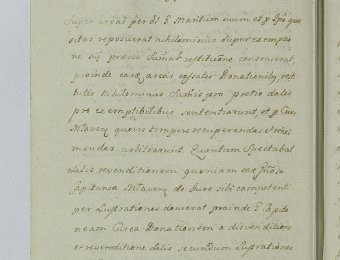 Super areas per dd E Mantum suum et p ipsos quæ
sitas reposuerat nihilominus super exemptio
ne sui prævia Summæ restitutione consenserat
proinde easdem areas cassatis Donationibus rest
titutis Nihilominus Iustis pro pretio datis
pro exemptibilibus sententiarunt, et p Cives
quovis tempore recuperandas et
mendas arbitrarunt Quantum Spectabat
Salis revenditionem quoniam eadem
Capitanea de Iure sibi competenti
per Lustrationes docuerat proinde E Capita
neam Circa Donationem a divenditione
et revenditione Salis secundum Lustrationes